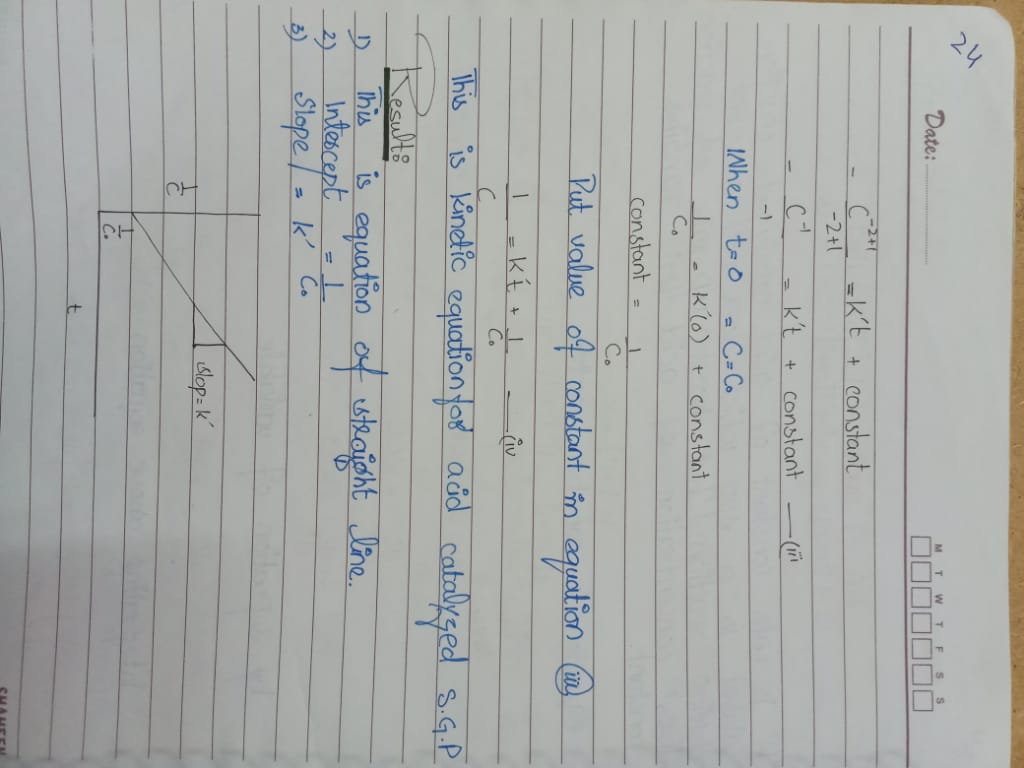 24
Date:
M T W T F S S
- C⁻²⁺¹ / -2+1 = k't + constant
- C⁻¹ / -1 = k't + constant —(iii
When t=0 = C=C₀
1/C₀ = k'(0) + constant
constant = 1/C₀
Put value of constant in equation (iii)
1/C = k't + 1/C₀ —(iv
This is kinetic equation for acid catalyzed S.G.P
Result:
1) This is equation of straight line.
2) Intercept = 1/C₀
3) Slope = k'
1/C
1/C₀
slop = k'
t
SHAHEEN